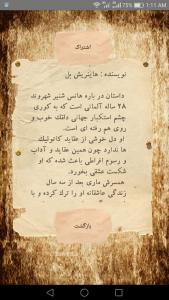 75% 1:11 AM
اشتراک
نویسنده : هاینریش بل
داستان در باره هانس شنیر شهروند
۲۸ ساله آلمانی است که به کوری
چشم استکبار جهانی دلقک خوب و
روی هم رفته ای است.
او دل خوشی از عقاید کاتولیک
ها ندارد چون همین عقاید و آداب
و رسوم افراطی باعث شده که او
شکست عشقی بخورد.
همسرش ماری بعد از سه سال
زندگی عاشقانه او را ترک کرده و با
بازگشت